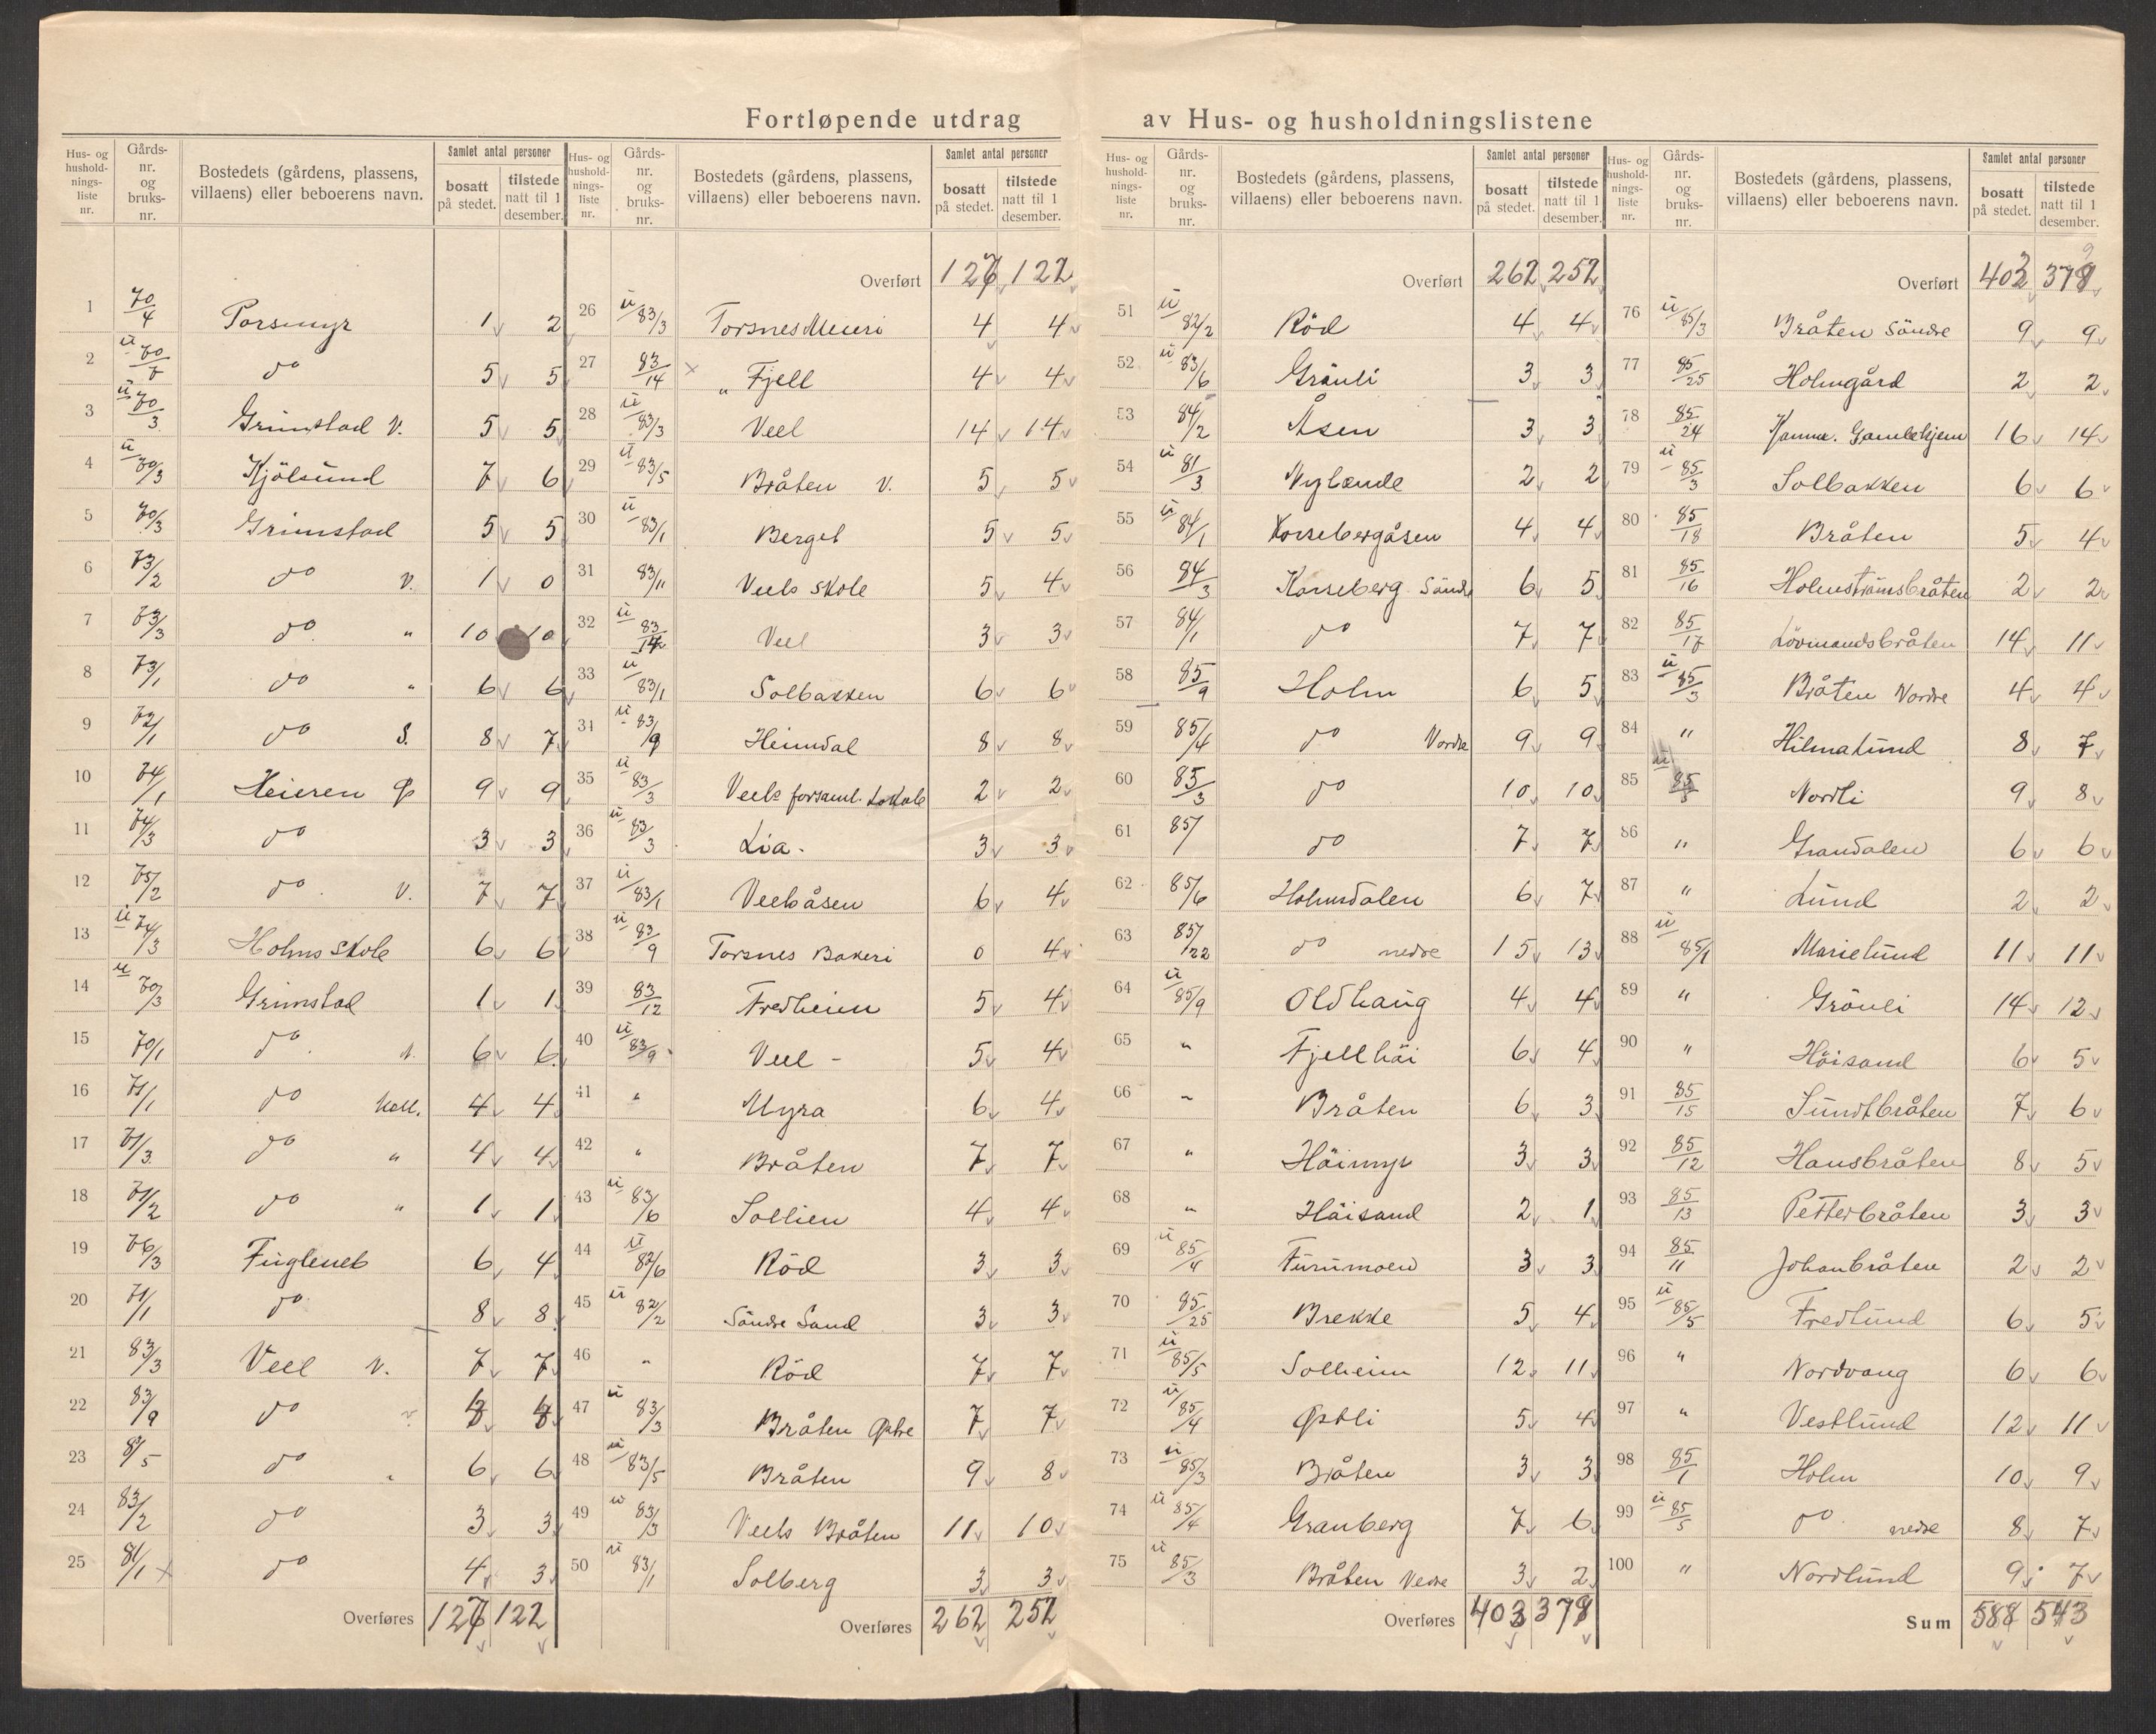 Fortløpende utdrag av Hus- og husholdningslistene
Hus- og husholdnings-liste nr. Gårds-nr. og bruks-nr. Bostedets (gårdens, plassens, villaens) eller beboerens navn. Samlet antal personer bosatt på stedet. tilstede natt til 1 desember.
1 70/4 Porsmyr 1 2
2 u 70/ do 5 5
3 u 70/3 Grimstad V. 5 5
4 u 70/3 Kjölsund 7 6
5 70/3 Grimstad 5 5
6 73/2 do V. 1 0
7 73/3 do " 10 10
8 73/1 do " 6 6
9 72/1 do S. 8 7
10 74/1 Heieren Ø 9 9
11 74/3 do 3 3
12 75/2 do V. 7 7
13 u 74/3 Holms skole 6 6
14 u 70/3 Grimstad 1 1
15 70/1 do N. 6 6
16 71/1 do Mell. 4 4
17 71/3 do " 4 4
18 71/2 do " 1 1
19 76/3 Fugleneb 6 4
20 71/1 do 8 8
21 83/3 Veel N. 7 7
22 83/9 do 8 8
23 81/5 do " 6 6
24 83/2 do 3 3
25 81/1 x do 4 3
Overføres 127 122
Hus- og husholdnings-liste nr. Gårds-nr. og bruks-nr. Bostedets (gårdens, plassens, villaens) eller beboerens navn. Samlet antal personer bosatt på stedet. tilstede natt til 1 desember.
Overført 127 122
26 u 83/3 Torsnes Meieri 4 4
27 83/14 x " Fjell 4 4
28 u 83/3 Veel 14 14
29 u 83/5 Bråten V. 5 5
30 u 83/1 Berget 5 5
31 83/11 Veels skole 5 4
32 u 83/ Veel 3 3
33 u 83/1 Solbakken 6 6
34 u 83/9 Heimdal 8 8
35 u 83/3 Veels forsaml. Lokale 2 2
36 u 83/3 Lia 3 3
37 u 83/1 Veelsåsen 6 4
38 u 83/9 Torsnes Bakeri 0 4
39 83/12 Fredheim 5 4
40 u 83/9 Veel 5 4
41 " Myra 6 4
42 " Bråten 7 7
43 u 83/6 Sollien 4 4
44 u 82/6 Röd 3 3
45 u 82/2 Söndre Sand 3 3
46 " Röd 7 7
47 u 83/3 Bråten Østre 7 7
48 u 83/5 Bråten 9 8
49 u 83/3 Veels Bråten 11 10
50 u 83/1 Solberg 3 3
Overføres 262 252
Hus- og husholdnings-liste nr. Gårds-nr. og bruks-nr. Bostedets (gårdens, plassens, villaens) eller beboerens navn. Samlet antal personer bosatt på stedet. tilstede natt til 1 desember.
Overført 262 252
51 u 82/2 Röd 4 4
52 u 83/6 Grönli 3 3
53 84/2 Åsen 3 3
54 u 81/3 Nylænde 2 2
55 u 84/1 Korsebergåsen 4 4
56 84/3 Korseberg Söndre 6 5
57 84/1 do 7 7
58 85/9 Holm 6 5
59 85/4 do Nordre 9 9
60 85/3 do 10 10
61 85/ do 7 7
62 85/6 Holmsdalen 6 7
63 85/22 do nedre 15 13
64 u 85/9 Oldhaug 4 4
65 " Fjellhöi 6 4
66 " Bråten 6 3
67 " Höimyr 3 3
68 " Höisand 2 1
69 u 85/4 Furumoen 3 3
70 85/25 Brekke 5 4
71 u 85/5 Solheim 12 11
72 u 85/4 Østli 5 4
73 u 85/3 Bråten 3 3
74 u 85/4 Granberg 7 6
75 u 85/3 Bråten Nedre 3 2
Overføres 403 378
Hus- og husholdnings-liste nr. Gårds-nr. og bruks-nr. Bostedets (gårdens, plassens, villaens) eller beboerens navn. Samlet antal personer bosatt på stedet. tilstede natt til 1 desember.
Overført 403 378
76 u 85/3 Bråten Söndre 9 9
77 85/25 Holmgård 2 2
78 85/24 Gamlehjem 16 14
79 u 85/3 Solbakken 6 6
80 85/18 Bråten 5 4
81 85/16 Holmströmsbråten 2 2
82 85/17 Lövmandsbråten 14 11
83 u 85/3 Bråten Nordre 4 4
84 " Hilmalund 8 7
85 u 85/5 Nordli 9 8
86 " Grandalen 6 6
87 " Lund 2 2
88 u 85/1 Marielund 11 11
89 " Grönli 14 12
90 " Höisand 6 5
91 85/15 Sundtbråten 7 6
92 85/12 Hansbråten 8 5
93 85/13 Petterbråten 3 3
94 85/11 Johanbråten 2 2
95 u 85/5 Fredlund 6 5
96 " Nordvang 6 6
97 " Vestlund 12 11
98 85/1 Holm 10 9
99 u 85/5 do nedre 8 7
100 " Nordlund 9 7
Sum 588 543